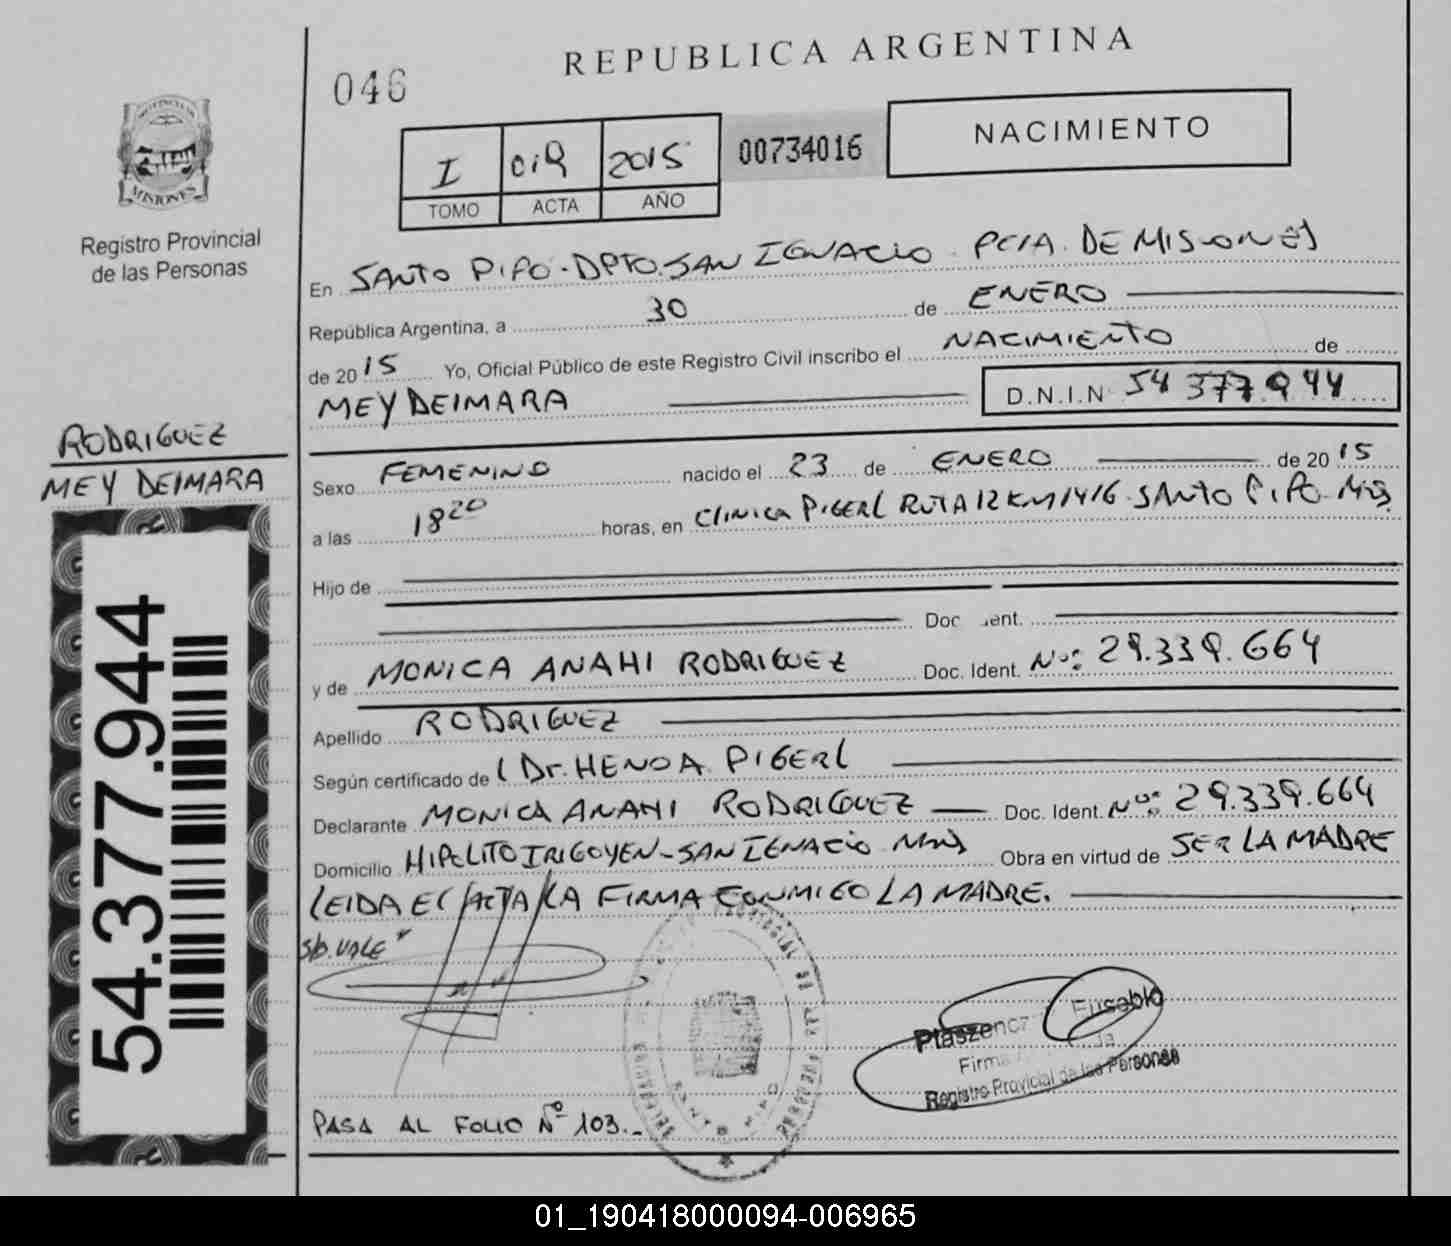 046
REPUBLICA ARGENTINA
NACIMIENTO
I 2015 00734016
TOMO ACTA AÑO
PROVINCIA DE
MISIONES
Registro Provincial
de las Personas
En SANTO PIPO - DPTO. SAN IGNACIO - PCIA. DE MISIONES
República Argentina, a 30 de ENERO
de 2015 Yo, Oficial Público de este Registro Civil inscribo el NACIMIENTO de
MEY DEIMARA D.N.I.N 54 377.944
RODRIGUEZ
MEY DEIMARA
54.377.944
Sexo FEMENINO nacido el 23 de ENERO de 2015
a las 18 20 horas, en CLINICA PIGERL RUTA 12 KM 1416 - SANTO PIPO - Mis
Hijo de
Doc ent.
y de MONICA ANAHI RODRIGUEZ Doc. Ident. Nº: 29.339.664
Apellido RODRIGUEZ
Según certificado de Dr. HENO A. PIGERL
Declarante MONICA ANAHI RODRIGUEZ Doc. Ident. Nº: 29.339.664
Domicilio HIPOLITO IRIGOYEN - SAN IGNACIO Mis Obra en virtud de SER LA MADRE
LEIDA EL ACTA LA FIRMA CONMIGO LA MADRE.
s/b. VALE
Eusebio
Firma
Registro Provicial de las Personas
PASA AL FOLIO Nº 103.-
01_190418000094-006965